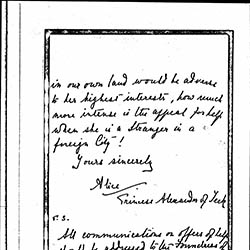 in our own land would be adverse
to her highest interests, how much
more intense is the appeal for help
when she is a stranger in a
foreign City!
Yours sincerely
Alice
Princess Alexander of Teck
P.S.
All communications or offers of help
should be addressed to the Foundress of